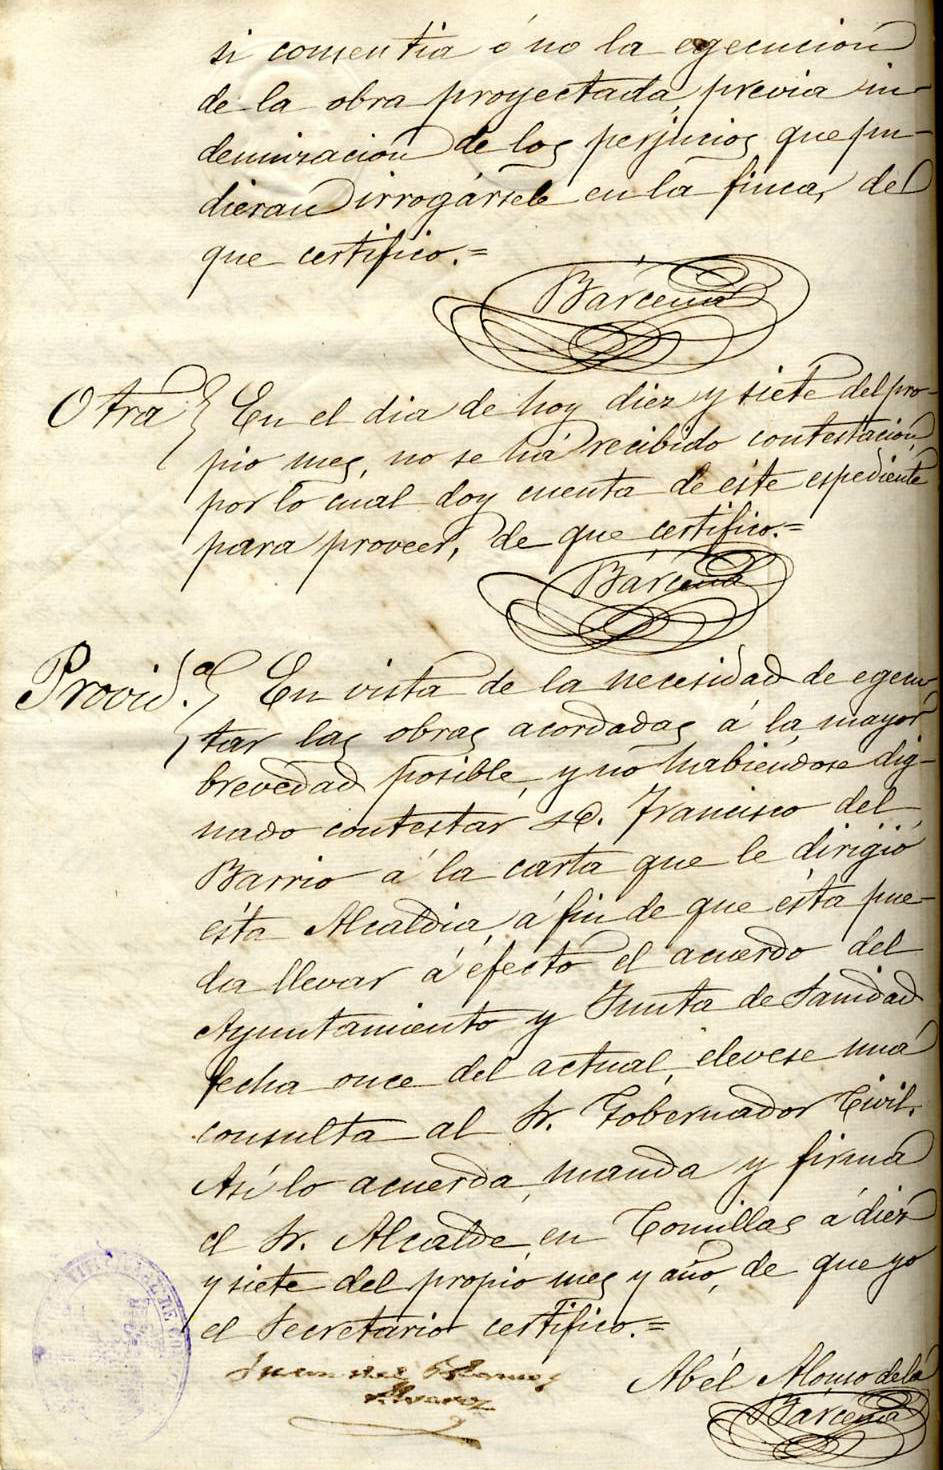 si consentia ó no la egecución
de la obra proyectada, previa in-
demnizacion de los perjuicios que pu-
dieran irrogársele en la finca, de
que certifico.=
Bárcena
Otra} En el dia de hoy diez y siete del pro-
pio mes, no se há recibido contestación
por lo cual doy cuenta de éste espediente
para proveer, de que certifico.=
Bárcena
Provid.ª} En vista de la necesidad de egecu-
tar las obras acordadas á la mayor
brevedad posible, y no habiéndose dig-
nado contestar D. Francisco del
Barrio á la carta que le dirigió
ésta Alcaldia á fin de que ésta pue-
da llevar á éfecto el acuerdo del
Ayuntamiento y Junta de Sanidad
fecha once del actual, elevese una
consulta al Sr. Gobernador Civil.
Así lo acuerda, manda y firma
el Sr. Alcalde en Comillas á diez
y siete del propio mes y año, de que yo
el Secretario certifico.=
Juan
Abél Alonso de la
Bárcena